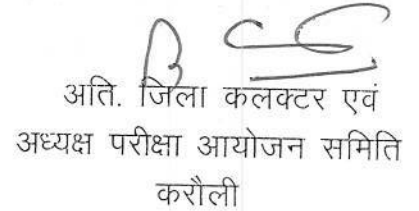 अति. जिला कलक्टर एवं
अध्यक्ष परीक्षा आयोजन समिति
करौली